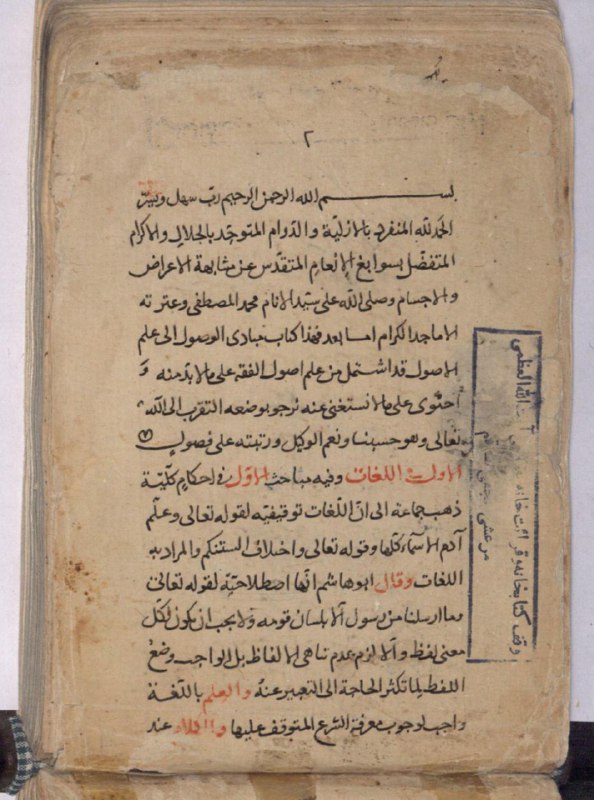 ٢
بســـم الله الرحمن الرحيم ربّ سهل ويسّر
الحمد للّه المنفرد بالازليّة والدّوام المتوحّد بالجلال والاكرام
المتفضّل بسوابغ الانعام المتقدّس عن مشابهة الاعراض
والاجسام وصلى اللّه على سيّد الانام محمد المصطفى وعترته
الاماجد الكرام امّا بعد فهذا كتاب مبادى الوصول الى علم
الاصول قد اشتمل من علم اصول الفقه على ما لا بدّ منه و
احتوى على ما لا نستغنى عنه نرجو بوضعه التقرب الى اللّه
تعالى وهو حسبنا ونعم الوكيل ورتبته على فصول
الاول فى اللغات وفيه مباحث الاوّل فى احكام كلّيّة
ذهب جماعة الى انّ اللّغات توقيفيّه لقوله تعالى وعلّم
آدم الاسماء كلّها وقوله تعالى واختلاف السنتكم والمراد به
اللغات وقال ابو هاشم انّها اصطلاحيّة لقوله تعالى
وما ارسلنا من رسول الّا بلسان قومه ولا يجب ان يكون لكّل
معنى لفظ والّا لزم عدم تناهى الالفاظ بل الواجب وضع
اللفظ لما تكثر الحاجة الى التعبير عنه والعلم باللّغة
واجب لوجوب معرفة الشرع المتوقف عليها عند
وقف كتابخانه و قرائت خانه آيت الله العظمى
مرعشى نجفى قم